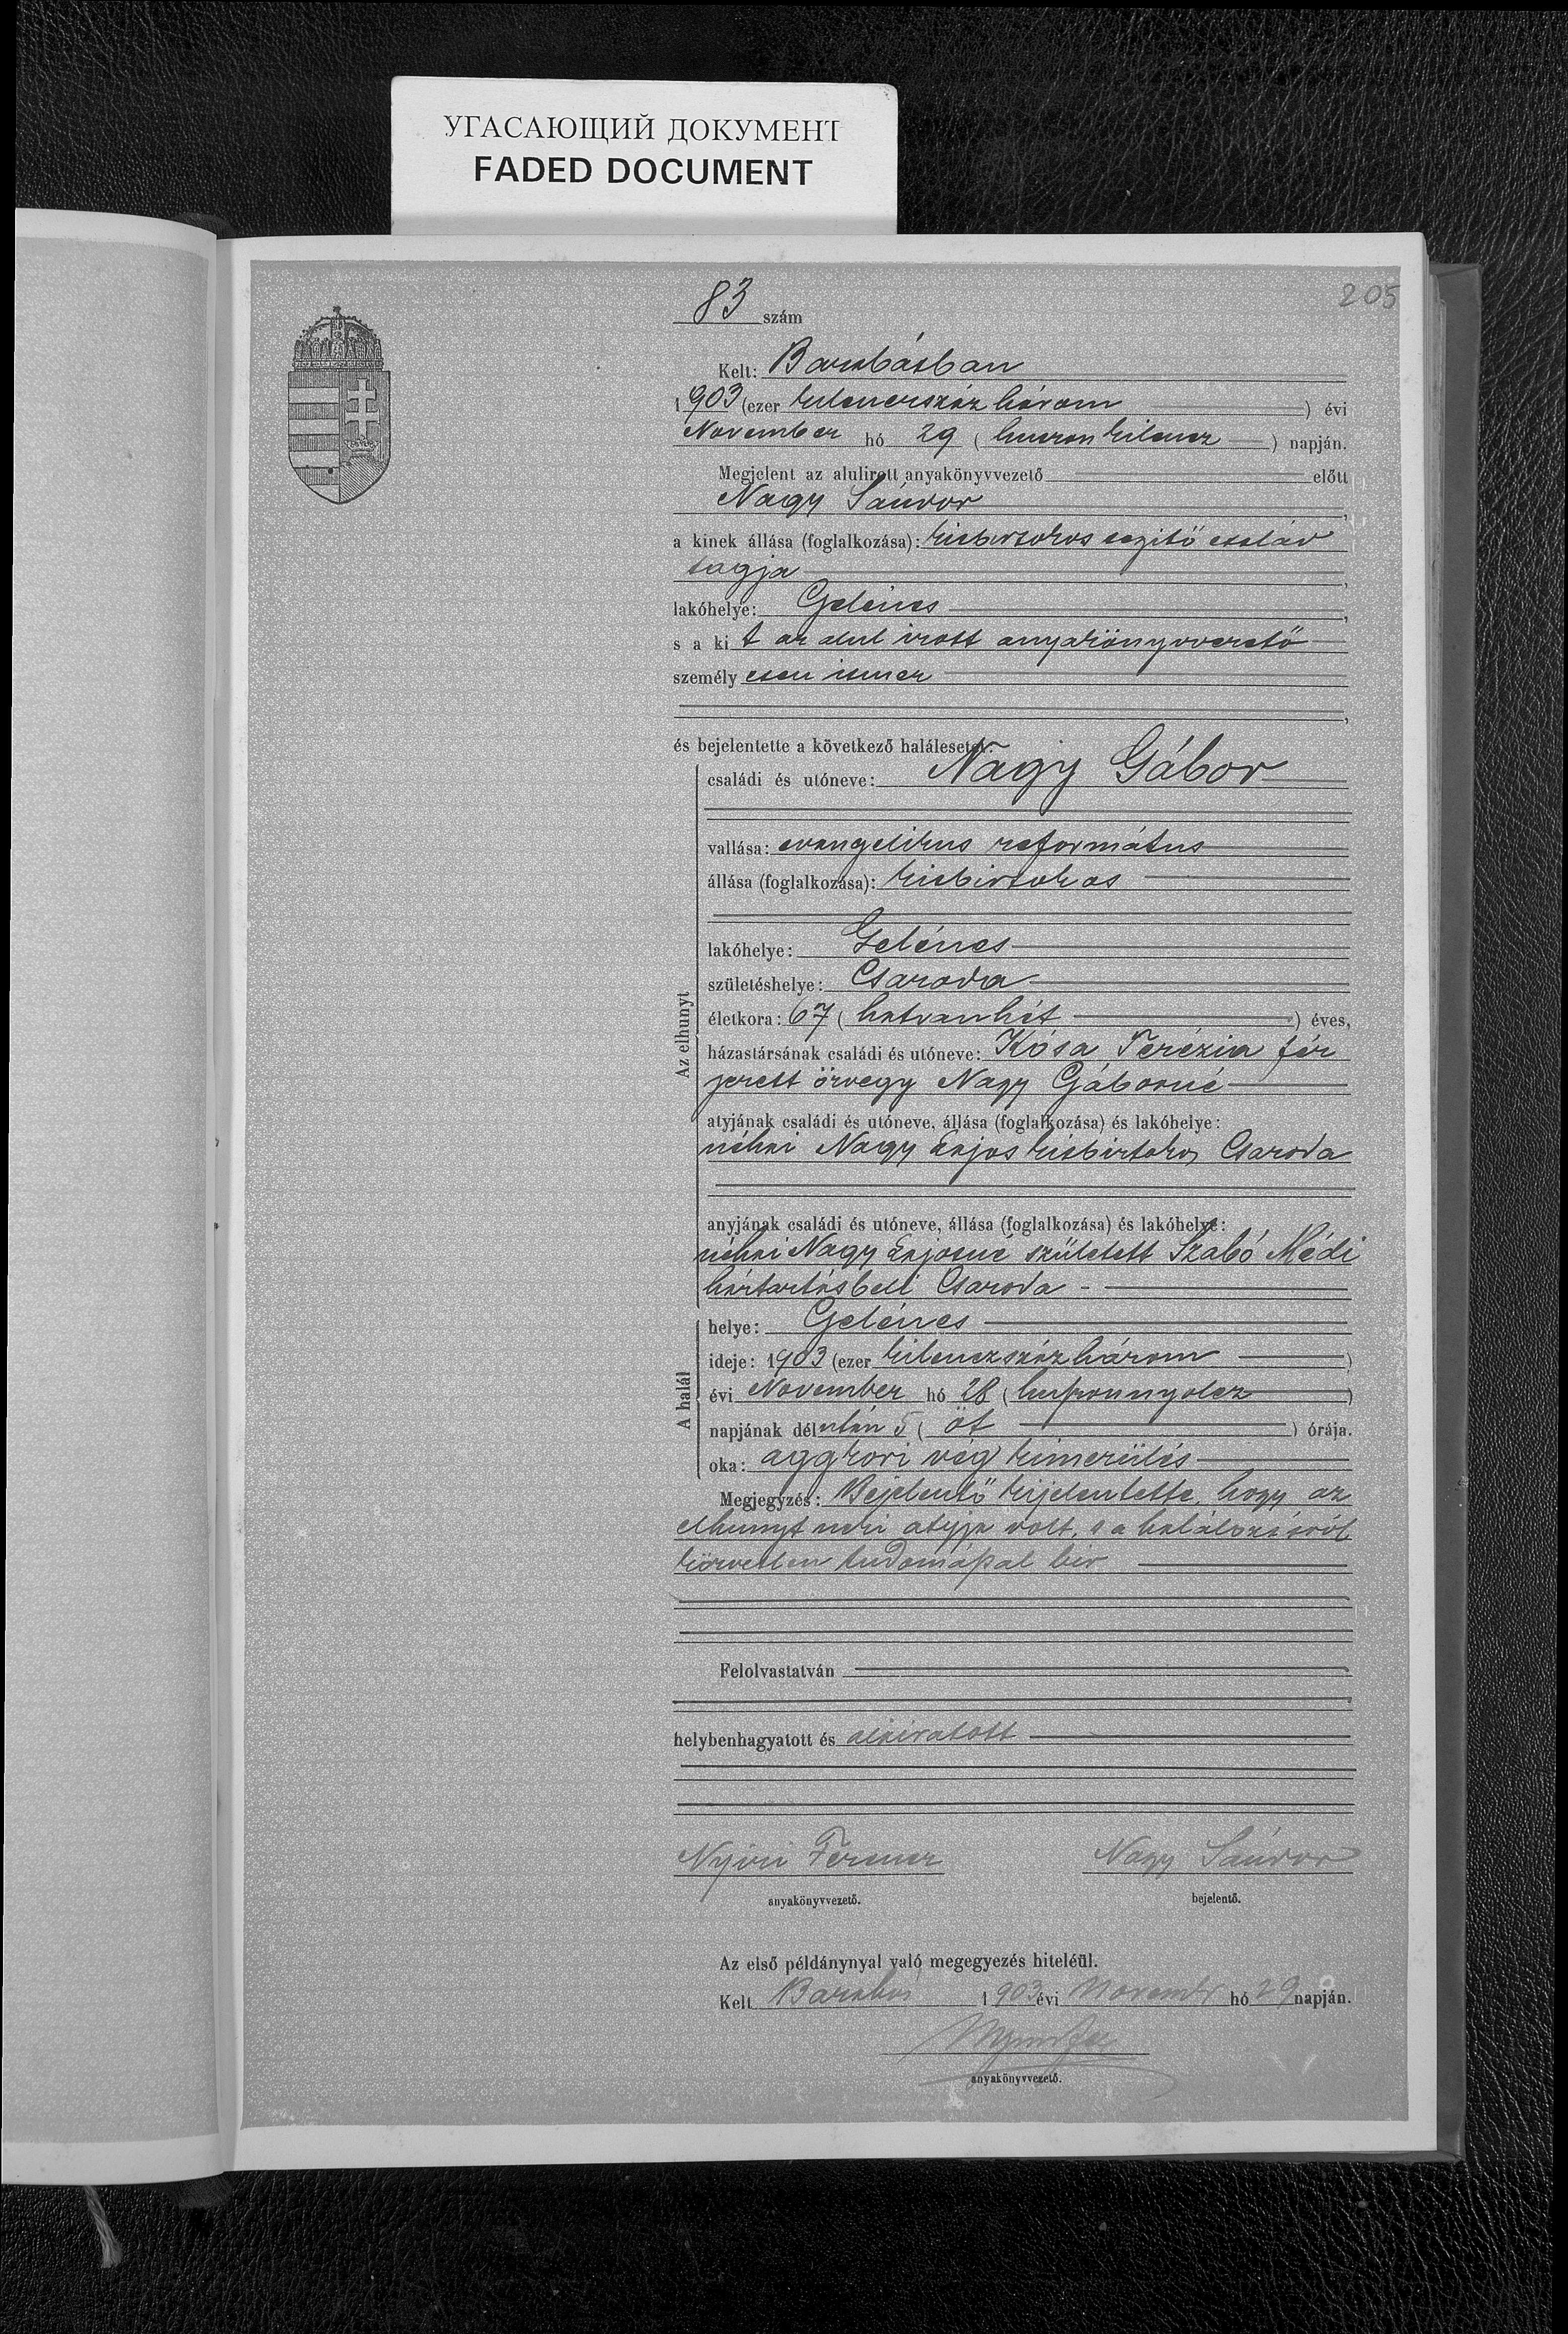 УГАСАЮЩИЙ ДОКУМЕНТ
FADED DOCUMENT
205
83 szám
Kelt: Barabásban
1903 (ezer kilenczszáz három) évi
November hó 29 (huszon kilencz) napján.
Megjelent az alulirott anyakönyvvezető előtt
Nagy Sándor,
a kinek állása (foglalkozása): kisbirtokos segitő család
tagja,
lakóhelye: Gelénes,
s a kit az alul irott anyakönyvvezető
személyesen ismer
,
és bejelentette a következő halálesetet:
családi és utóneve: Nagy Gábor
Az elhunyt
vallása: evangelikus református
állása (foglalkozása): kisbirtokos
lakóhelye: Gelénes
születéshelye: Csaroda
életkora: 67 (hatvanhét) éves,
házastársának családi és utóneve: Kósa Terézia fér
jezett özvegy Nagy Gáborné
atyjának családi és utóneve, állása (foglalkozása) és lakóhelye:
néhai Nagy Lajos kisbirtokos Csaroda
anyjának családi és utóneve, állása (foglalkozása) és lakóhelye:
néhai Nagy Lajosné született Szabó Médi
háztartásbeli Csaroda -
A halál
helye: Gelénes
ideje: 1903 (ezer kilenczszázhárom)
évi November hó 28 (huszonnyolcz)
napjának délután 5 (öt) órája.
oka: aggkori vég kimerülés
Megjegyzés: Bejelentő kijelentette, hogy az
elhunyt neki atyja volt, s a halálozásról
közvetlen tudomással bir
Felolvastatván
helybenhagyatott és aláiratott
Nyiri Ferencz
Nagy Sándor
anyakönyvvezető.
bejelentő.
Az első példánynyal való megegyezés hiteléül.
Kelt Barabás 1903 évi November hó 29 napján.
anyakönyvvezető.